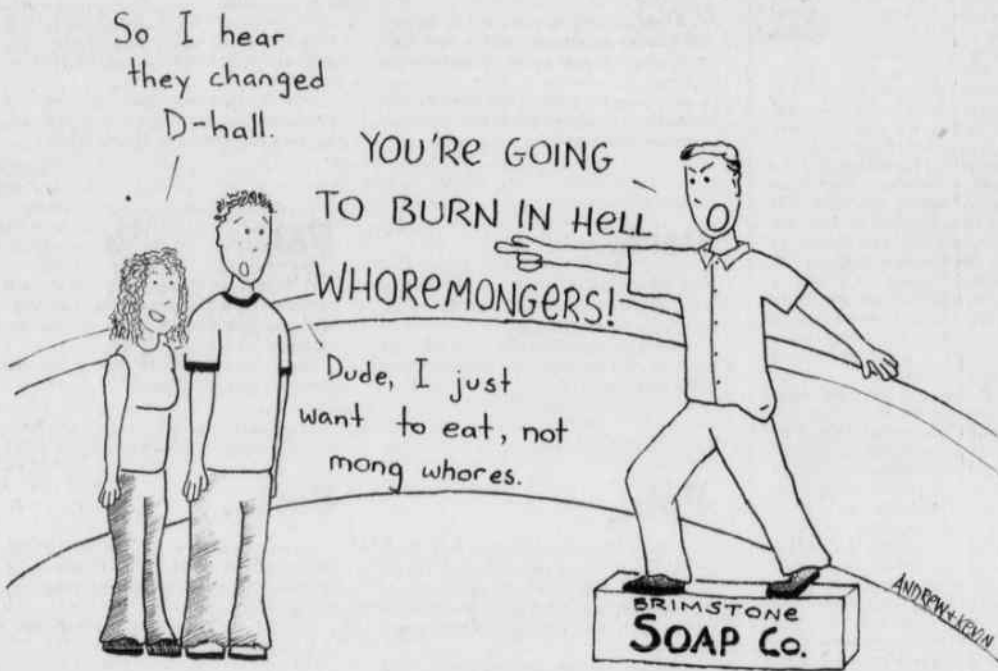 So I hear
they changed
D-hall.
YOU'RE GOING
TO BURN IN HELL
WHOREMONGERS!
Dude, I just
want to eat, not
mong whores.
BRIMSTONE
SOAP Co.
ANDREW + KEVIN